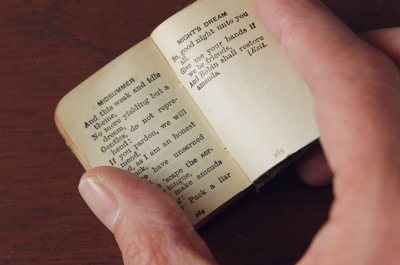 MIDSUMMER
And this weak and idle
theme,
No more yielding but a
dream,
Gentles, do not repre-
hend:
If you pardon, we will
mend,
as I am an honest
have unearned
'scape the ser-
tongue,
make amends
Puck a liar
284
NIGHT'S DREAM
So, good night unto you
all.
Give me your hands if
we be friends,
And Robin shall restore
amends.
[Exit.
285